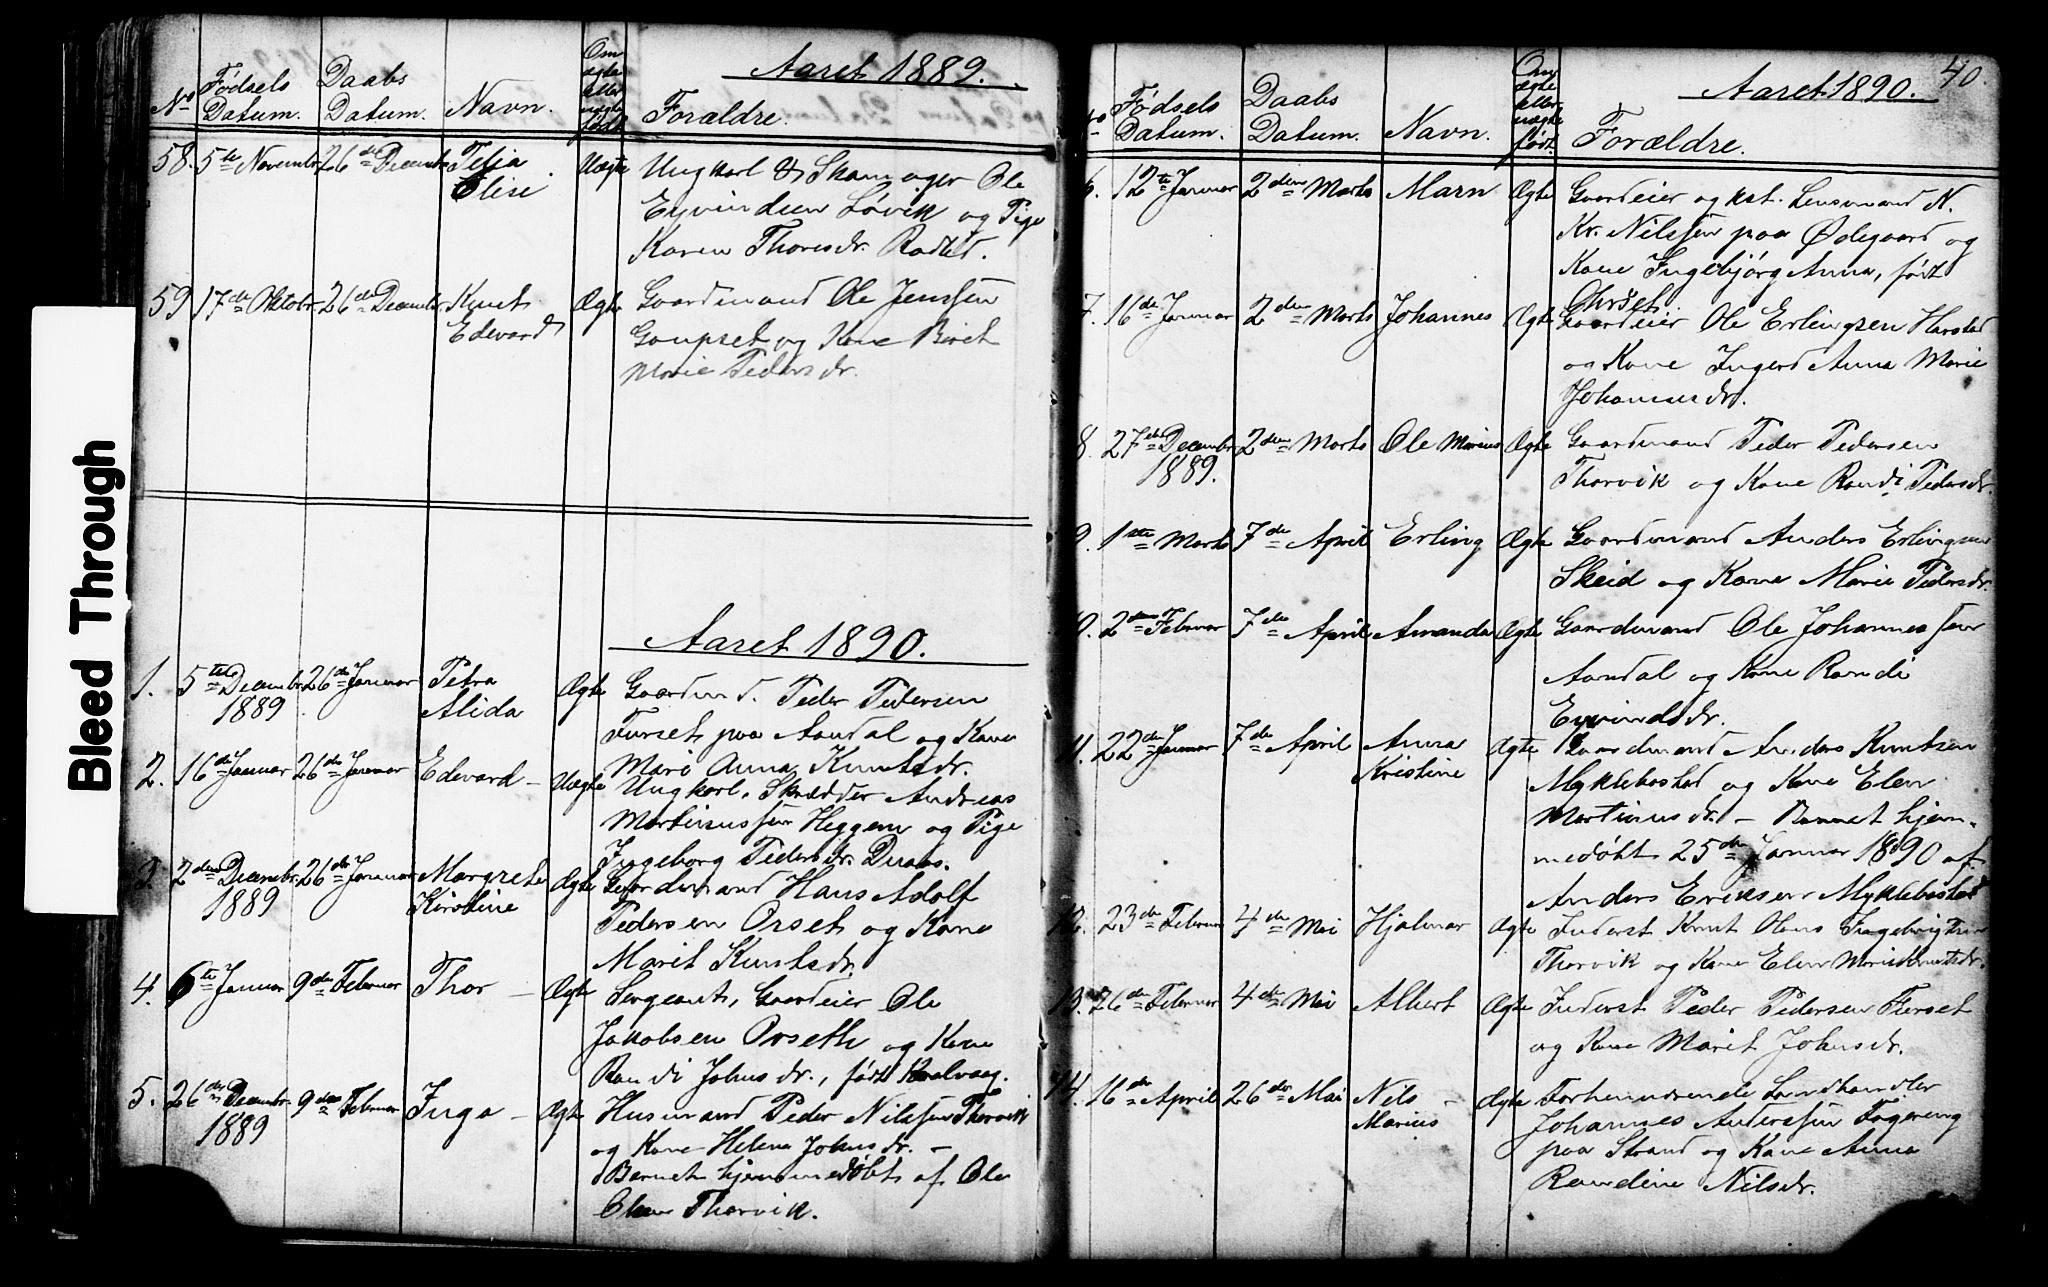 Bleed Through
Aaret 1889.
No Fødsels Datum. Daabs Datum. Navn. Om ægte eller uægte født Forældre.
58. 5te Novembr. 26de Decembr. Telia Uægte Ungkarl & Skomager Ole
Elise Eyvindsen Løvik og Pige
Karen Thoresdr. Rødsed.
59 17de Oktobr. 26de Decembr. Knut Ægte Gaardmand Ole Jenssen
Edevard Gaupset og Kone Beret
Marie Pedersdr.
Aaret 1890.
1. 5te Decembr. 26de Januar Petra Ægte Gaardmd. Peder Pedersen
1889 Alida Furset paa Aandal og Kone
Mari Anna Knutsdr.
2. 16de Januar 26de Januar Edevard – Uægte Ungkarl, Skrædder Andreas
Martinussen Heggem og Pige
Ingeborg Pedersdr.
3. 2den Decembr. 26de Januar Margrete Ægte Gaardmand Hans Adolf
1889 Kirstine Pedersen Orset og Kone
Marit Knutsdr.
4. 6te Januar 9de Februar Thor – Ægte Sergeant, Gaardeier Ole
Jakobsen Orseth og Kone
Randi Johnsdr., født Kvalvaag.
5. 26de Decembr. 9de Februar Inga – Ægte Husmand Peder Nilssen Thorvik
1889 og Kone Helene Johnsdr. –
Barnet hjemmedøbt af Ole
Olsen Thorvik.
Aaret 1890. 40.
No Fødsels Datum. Daabs Datum. Navn. Om ægte eller uægte født. Forældre.
6. 12te Januar 2den Marts Marn Ægte Gaardeier og kst. Lensmand N.
Kr. Nilssen paa Ødegaard og
Kone Ingebjørg Anna, født
Ohrset.
7. 16de Januar 2den Marts Johannes Ægte Gaardeier Ole Erlingsen Harstad
og Kone Ingerd Anna Marie
Johannesdr.
8. 27de Decembr. 2den Marts Ole Marius Ægte Gaardmand Peder Pedersen
1889. Thorvik og Kone Randi Pedersdr.
9. 1ste Marts 7de April Erling Ægte Gaardmand Anders Erlingsen
Skeid og Kone Marie Pedersdr.
10. 2den Februar 7de April Amanda Ægte Gaardmand Ole Johannessen
Aandal og Kone Randi
Eyvindsdr.
11. 22de Januar 7de April Anna Ægte Gaardmand Anders Knutsen
Kristine Myklebostad og Kone Elen
Martinusdr. – Barnet hjem-
medøbt 25de Januar 1890 af
Anders Eriksen Myklebostad
12. 23de Februar 4de Mai Hjalmar Ægte Inderst Knut Olaus Ingebrigtsen
Thorvik og Kone Elen Marie Knutsdr.
13. 26de Februar 4de Mai Albert Ægte Inderst Peder Pedersen Furset
og Kone Marit Johnsdr.
14. 16de April 26de Mai Nils – Ægte Forhenværende Landhandler
Marius Johannes Anderssen Fagereng
paa Strand og Kone Anna
Randine Nilsdr.